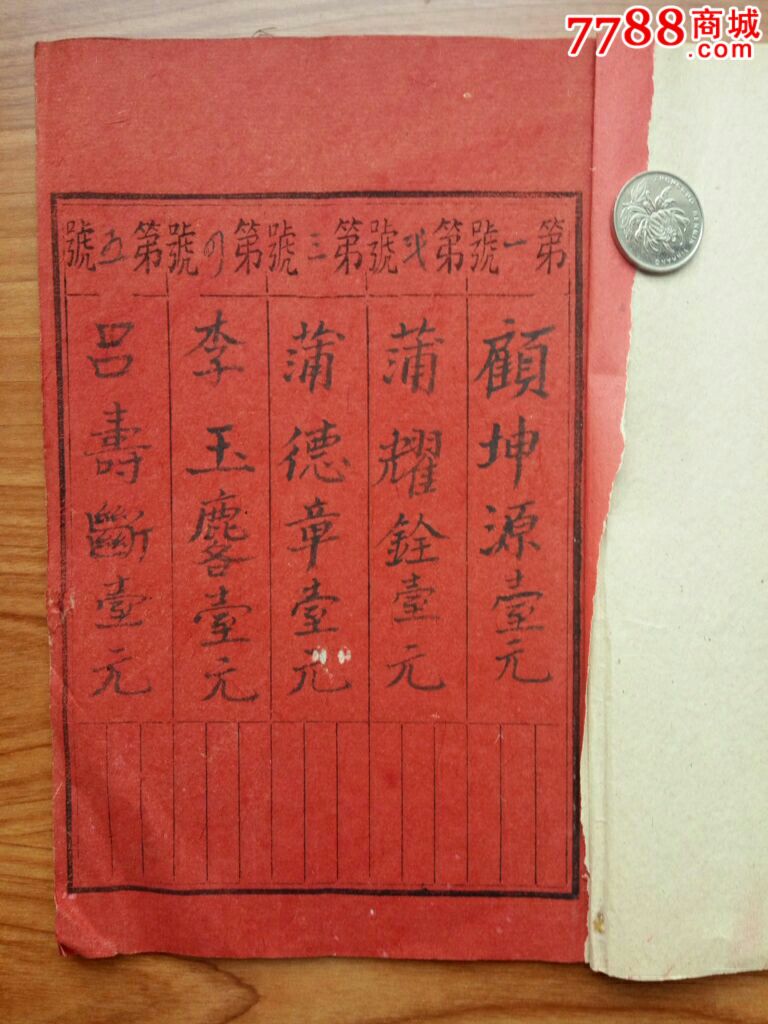 7788商城
.com
第一號
顧坤源壹元
第弍號
蒲耀銓壹元
第三號
蒲德章壹元
第四號
李玉麐壹元
第五號
吕壽斷壹元